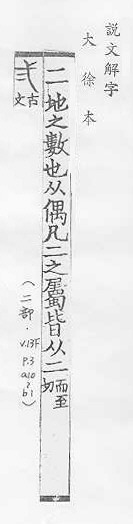 説文解字
大徐本
二地之數也从偶凡二之屬皆从二而至切
弍古文
(二部.
v.13F
p.3
a10
b1)